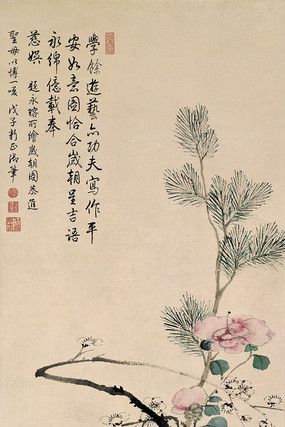 學餘遊藝亦功夫寫作平
安如意圖恰合歲朝呈吉語
永綿億載奉
慈娛 題永瑢所繪歲朝圖恭進
聖母以博一笑 戊子新正御筆